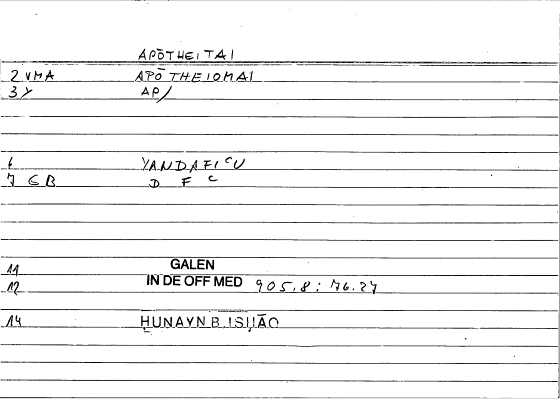 APŌTHEITAI
2 VMA APŌTHEIOMAI
3 Y AP/
6 YANDAFIʿU
7 GB D F ʿ
11 GALEN
12 IN DE OFF MED 905.8: 76.27
14 ḤUNAYN B. ISḤĀQ